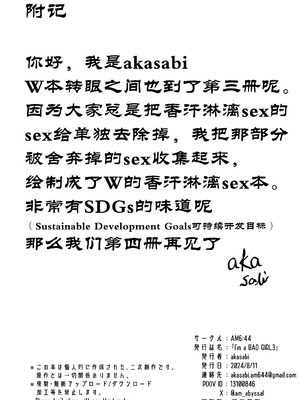 附记
你好，我是akasabi
W本转眼之间也到了第三册呢。
因为大家总是把香汗淋漓sex的
sex给单独去除掉，我把那部分
被舍弃掉的sex收集起来，
绘制成了W的香汗淋漓sex本。
非常有SDGs的味道呢
（Sustainable Development Goals可持续开发目标）
那么我们第四册再见了
aka
sabi
サークル：AM6:44
発行誌名：『I'm a BAD GIRL3』
発行者：akasabi
発行日：2024/8/11
連絡先：akasabi.am644@gmail.com
PIXIV ID：13100846
X：@am_abyssal
※この本は個人的に作成された、二次創作です。
原作とは一切関係ありません。
※複製・無断アップロード/ダウンロード
加工等を禁止します。